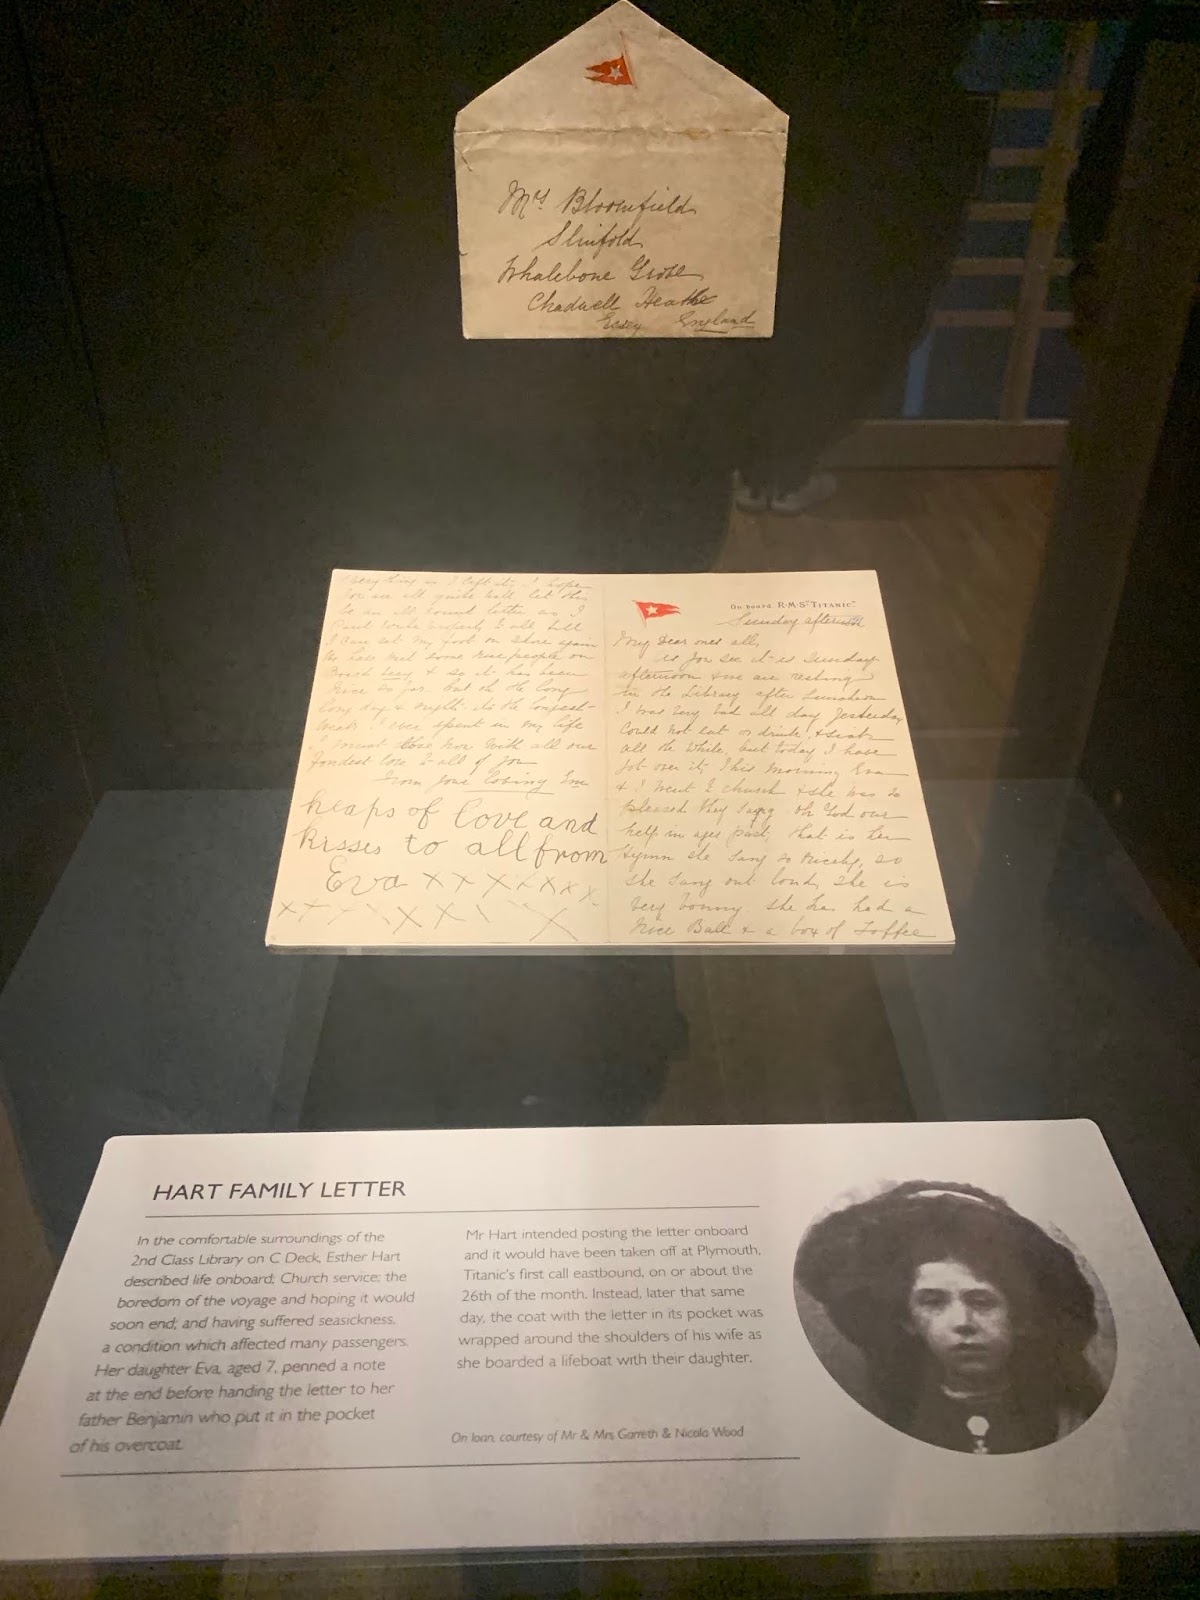 Mrs Bloomfield
Slinfold
Whalebone Grove
Chadwell Heath
Essex England
Everything as I left it, I hope
you are all quite well let this
be an all round letter as I
cant write properly to all till
I can set my foot on shore again
We have met some nice people on
and so it has been
nice so far. But oh the long
long day & nights its the longest
I ever spent in my life
I must close now with all our
fondest love to all of you
From your loving Em
heaps of love and
kisses to all from
Eva x x x x x x x
x x x x x x x x
On board R·M·S "TITANIC"
Sunday afternoon
My Dear ones all,
As you see it is Sunday
afternoon & we are resting
in the Library after Luncheon
I was very bad all day Yesterday
Could not eat or drink, & sick
all the while, but today I have
got over it, This morning Eva
& I went to church & she was so
pleased they sang Oh God our
help in ages past, that is her
Hymn she sang so nicely, so
she sang out loud, she is
very bonny. She has had a
nice Ball & a box of Toffee
HART FAMILY LETTER
In the comfortable surroundings of the
2nd Class Library on C Deck, Esther Hart
described life onboard; Church service; the
boredom of the voyage and hoping it would
soon end; and having suffered seasickness,
a condition which affected many passengers.
Her daughter Eva, aged 7, penned a note
at the end before handing the letter to her
father Benjamin who put it in the pocket
of his overcoat.
Mr Hart intended posting the letter onboard
and it would have been taken off at Plymouth,
Titanic's first call eastbound, on or about the
26th of the month. Instead, later that same
day, the coat with the letter in its pocket was
wrapped around the shoulders of his wife as
she boarded a lifeboat with their daughter.
On loan, courtesy of Mr & Mrs Garreth & Nicola Wood